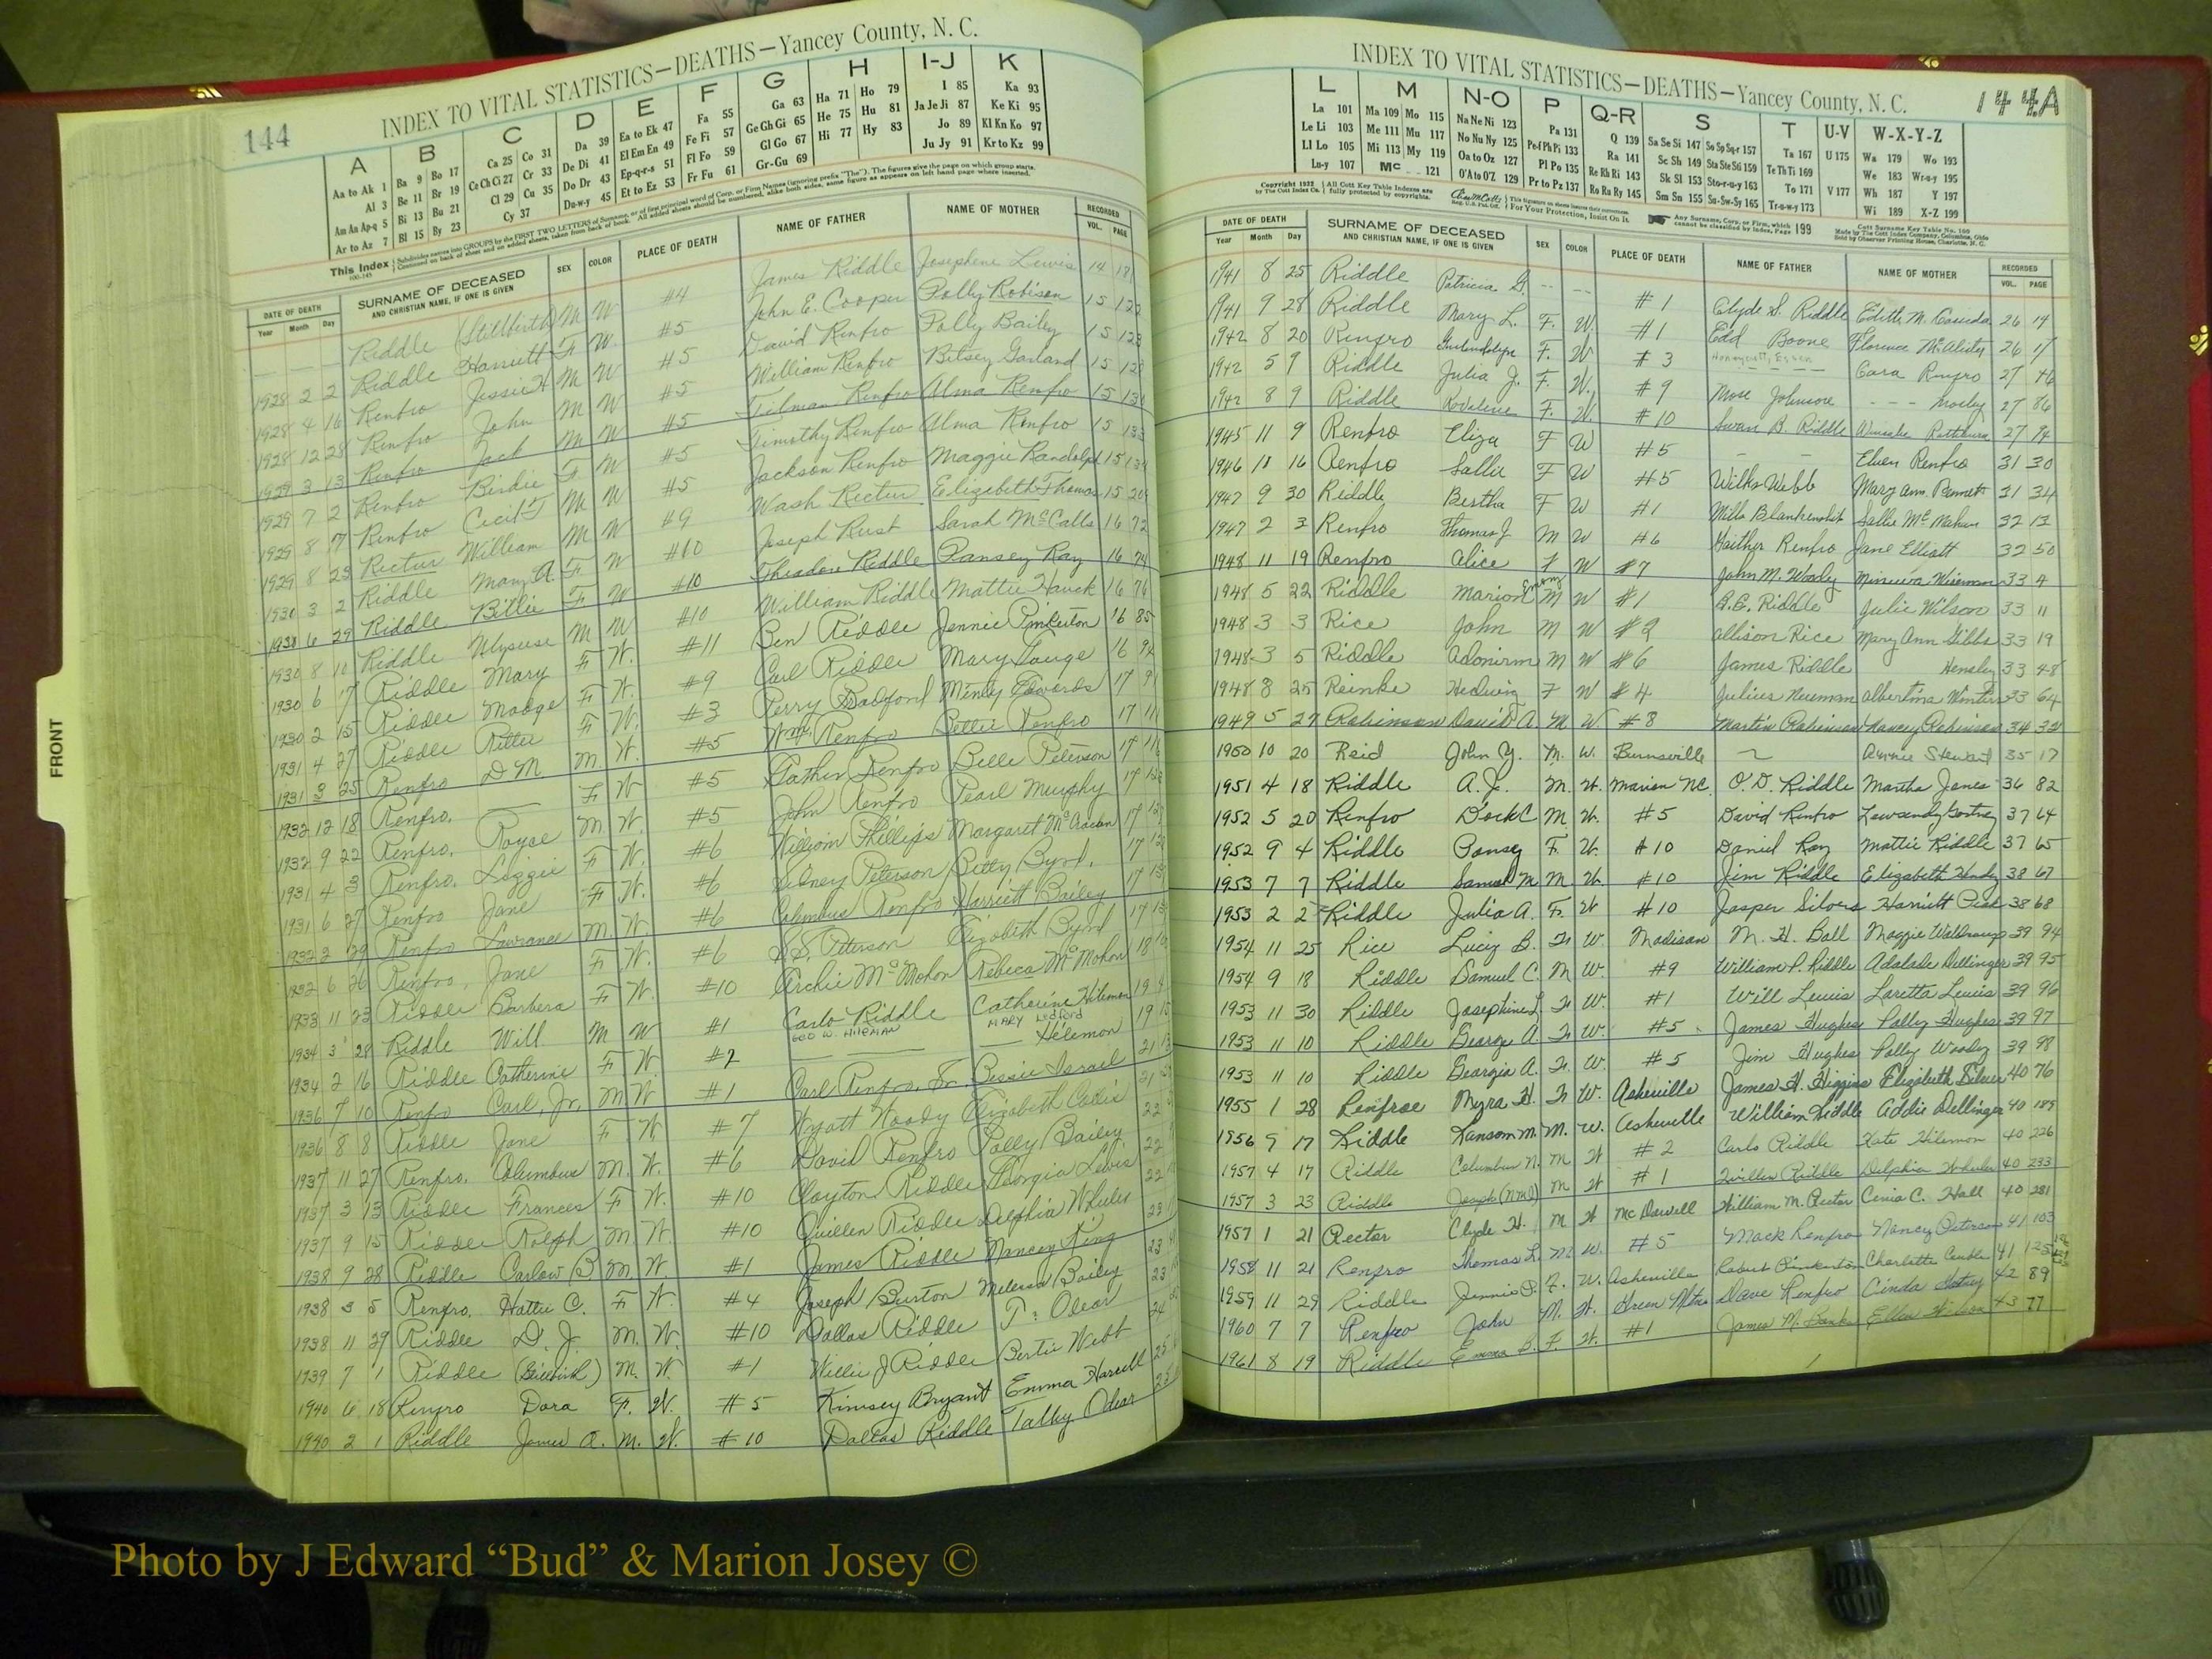 144
INDEX TO VITAL STATISTICS—DEATHS—Yancey County, N. C.
A B C D E F G H I-J K
Aa to Ak 1 Ba 9 Bo 17 Ca 25 Co 31 Da 39 Ea to Ek 47 Fa 55 Ga 63 Ha 71 Ho 79 I 85 Ka 93
Al 3 Be 11 Br 19 Ce Ch Ci 27 Cr 33 De Di 41 El Em En 49 Fe Fi 57 Ge Gh Gi 65 He 75 Hu 81 Ja Je Ji 87 Ke Ki 95
Am An Ap-q 5 Bi 13 Bu 21 Cl 29 Cu 35 Do Dr 43 Ep-q-r-s 51 Fl Fo 59 Gl Go 67 Hi 77 Hy 83 Jo 89 Kl Kn Ko 97
Ar to Az 7 Bl 15 By 23 Cy 37 Du-w-y 45 Et to Ez 53 Fr Fu 61 Gr-Gu 69 Ju Jy 91 Kr to Kz 99
This Index
DATE OF DEATH SURNAME OF DECEASED SEX COLOR PLACE OF DEATH NAME OF FATHER NAME OF MOTHER RECORDED
Year Month Day AND CHRISTIAN NAME, IF ONE IS GIVEN VOL. PAGE
Riddle (Stillbirth) M W #4 James Riddle Josephene Lewis 14
1928 2 2 Riddle Harriett F W #5 John E. Cooper Polly Robison 15
1928 4 16 Renfro Jessie H M W #5 David Renfro Polly Bailey 15
1928 12 28 Renfro John M W #5 William Renfro Betsey Garland 15
1929 3 13 Renfro Jack M W #5 Tilman Renfro Alma Renfro 15
1929 7 2 Renfro Birdie F W #5 Timothy Renfro Alma Renfro 15
1929 8 7 Renfro Cecil M W #5 Jackson Renfro Maggie Randolph 15
1929 8 23 Rector William M W #9 Wash Rector Elizabeth Thomas 15
1930 3 2 Riddle Mary A. F W #10 Joseph Rust Sarah McCalls 16 72
1930 6 29 Riddle Billie F W #10 Theadore Riddle Pansey Ray 16 74
1930 8 10 Riddle Ulyssus M W #10 William Riddle Mattie Hauck 16 76
1930 6 7 Riddle Mary F W. #11 Ben Riddle Jennie Pinkerton 16 85
1930 2 15 Riddle Madge F W. #9 Carl Riddle Mary Gouge 16
1931 4 27 Riddle Rittie F W. #3 Perry Bradford Minty Edwards 17
1931 3 25 Renfro D M M W. #5 Wm. Renfro Bettie Renfro 17
1932 12 18 Renfro. — F W #5 Gather Renfro Belle Peterson 17
1932 9 22 Renfro. Royce M. W. #5 John Renfro Pearl Murphy 17
1931 4 3 Renfro. Lizzie F W. #6 William Phillips Margaret 17
1931 6 27 Renfro Jane F W. #6 Sidney Peterson Betty Byrd. 17
1932 3 29 Renfro Lawrance M W. #6 Columbus Renfro Harriett Bailey 17
1932 6 26 Renfro, Jane F W. #6 S.S. Peterson Elizabeth Byrd 17
1933 11 23 Riddle Barbera F W. #10 Archie McMahon Rebeca McMahon 18
1934 3 28 Riddle Will M W #1 Carlo Riddle Catherine Hileman 19
1934 2 16 Riddle Catherine F W. #2 GEO W. HILEMAN MARY Ledford Hilemon 19
1936 7 10 Renfro Carl, Jr. M W #1 Carl Renfro, Sr. Bessie Israel 21
1936 8 8 Riddle Jane F W #7 Wyatt Woody Elizabeth Collis 21
1937 11 27 Renfro. Columbus M. W. #6 David Renfro Polly Bailey 22
1937 3 13 Riddle Frances F W. #10 Clayton Riddle Georgia Lewis 22
1937 9 15 Riddle Ralph M W. #10 Quillen Riddle Delphia Wheeler 22
1938 9 28 Riddle Carlow B M. W #1 James Riddle Nancy King 23
1938 3 5 Renfro. Hattie C. F W. #4 Joseph Burton Melissa Bailey 23
1938 11 29 Riddle D. J. M. W. #10 Dallas Riddle T. Odear 23
1939 7 1 Riddle (Stillbirth) M. W. #1 Willie J Riddle Bertie Webb 24
1940 6 18 Renfro Dora F. W. #5 Kimsey Bryant Emma Harrell 25
1940 2 1 Riddle James A. M. W. #10 Dallas Riddle Talby Odear 25
FRONT
144A
INDEX TO VITAL STATISTICS—DEATHS—Yancey County, N. C.
L M N-O P Q-R S T U-V W-X-Y-Z
La 101 Ma 109 Mo 115 Na Ne Ni 123 Pa 131 Q 139 Sa Se Si 147 So Sp Sq-r 157 Ta 167 U 175 Wa 179 Wo 193
Le Li 103 Me 111 Mu 117 No Nu Ny 125 Pe-f Ph Pi 133 Ra 141 Sc Sh 149 Sta Ste Sti 159 Te Th Ti 169 We 183 Wr-u-y 195
Ll Lo 105 Mi 113 My 119 Oa to Oz 127 Pl Po 135 Re Rh Ri 143 Sk Sl 153 Sto-r-u-y 163 To 171 V 177 Wh 187 Y 197
Lu-y 107 Mc 121 O'A to O'Z 129 Pr to Pz 137 Ro Ru Ry 145 Sm Sn 155 Su-Sw-Sy 165 Tr-u-w-y 173 Wi 189 X-Z 199
DATE OF DEATH SURNAME OF DECEASED SEX COLOR PLACE OF DEATH NAME OF FATHER NAME OF MOTHER RECORDED
Year Month Day AND CHRISTIAN NAME, IF ONE IS GIVEN VOL. PAGE
1941 8 25 Riddle Patricia G. -- -- #1 Clyde S. Riddle Edith M. 26 14
1941 9 28 Riddle Mary L. F. W. #1 Edd Boone Florence McAlister 26 17
1942 8 20 Renfro F. W #3 Cara Renfro 27 46
1942 5 9 Riddle Julia J. F. W. #9 Mose Johnson - - - Mosley 27 86
1942 8 9 Riddle F. W. #10 Swan B. Riddle 27 94
1945 11 9 Renfro Eliza F W #5 - - Elven Renfro 31 30
1946 10 16 Renfro Sallie F W #5 Wilks Webb Mary Ann 31 34
1947 9 30 Riddle Bertha F W #1 Mills Blankenship Sallie McMahan 32 12
1947 2 3 Renfro Thomas J M W #6 Gaither Renfro Jane Elliott 32 50
1948 11 19 Renfro Alice F W #7 John M. Woody Minerva Wiseman 33 4
1948 5 22 Riddle Marion M W #1 B.E. Riddle Julie Wilson 33 11
1948 3 3 Rice John M W #2 Allison Rice Mary Ann Gibbs 33 19
1948 3 5 Riddle Adonirm M W #6 James Riddle Hensley 33 48
1948 8 25 Reinke Hedwig F W #4 Julius Neuman Albertina Winters 33 64
1949 5 27 Robinson David A. M W. #8 Martin Robinson Nancy Robinson 34 32
1950 10 20 Reid John Y. M. W. Burnsville ~ Annie Stewart 35 17
1951 4 18 Riddle A. J. M. W. Marion N.C. O. D. Riddle Martha James 36 82
1952 5 20 Renfro Dock C M W. #5 David Renfro 37 64
1952 9 4 Riddle Pansy F. W. #10 Daniel Ray Mattie Riddle 37 65
1953 7 7 Riddle Samuel M M. W. #10 Jim Riddle Elizabeth 38 67
1953 2 2 Riddle Julia A. F. W #10 Jasper Silvers Harriett Peak 38 68
1954 11 25 Rice Lucy B. F. W. Madison M. H. Ball Maggie Waldroup 39 94
1954 9 18 Riddle Samuel C. M W. #9 William P. Riddle Adalade Dellinger 39 95
1953 11 30 Riddle Josephine L F. W. #1 Will Lewis Loretta Lewis 39 96
1953 11 10 Riddle George A. F. W. #5 James Hughes Polly Hughes 39 97
1953 11 10 Riddle Georgia A. F. W. #5 Jim Hughes Polly Woody 39 98
1955 1 28 Renfroe Myra H. F. W. Asheville James H. Higgins Elizabeth Silver 40 76
1956 9 17 Riddle Ransom M. M. W. Asheville William Riddle Addie Dellinger 40 189
1957 4 17 Riddle Columbus N. M W #2 Carlo Riddle Kate Hilemon 40 226
1957 3 23 Riddle Joseph (NMI) M W #1 Quillen Riddle Delphia Wheeler 40 233
1957 1 21 Rector Clyde H. M W McDowell William M. Rector Cenia C. Hall 40 281
1958 11 21 Renfro Thomas L. M W. #5 Mack Renfro Nancy Peterson 41 103
1959 11 29 Riddle Jennie P. F. W. Asheville Robert Pinkerton Charlotte 41 125
1960 7 7 Renfro John M. W. Green Mtn Dave Renfro Cinda 42 89
1961 8 19 Riddle Emma B. F. W. #1 James M. Banks Ellen Wilson 43 77
Photo by J Edward “Bud” & Marion Josey ©